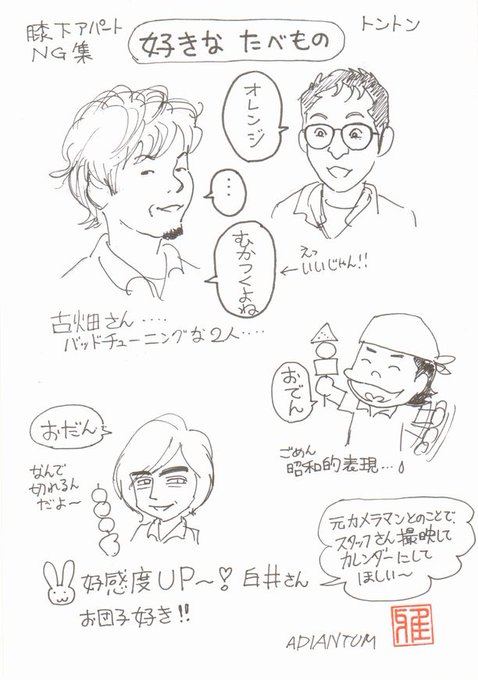 膝下アパート
NG集
好きな たべもの
トントン
オレンジ
…
むかつくよね
えっ
←いいじゃん!!
古畑さん‥‥
バッドチューニングな2人‥‥
おでん
ごめん
昭和的表現…
おだん
なんで
切れるん
だよ〜
元カメラマンとのことで、
スタッフさん撮映して
カレンダーにして
ほしい〜
好感度UP〜! 白井さん
お団子好き!!
ADIANTUM
雅